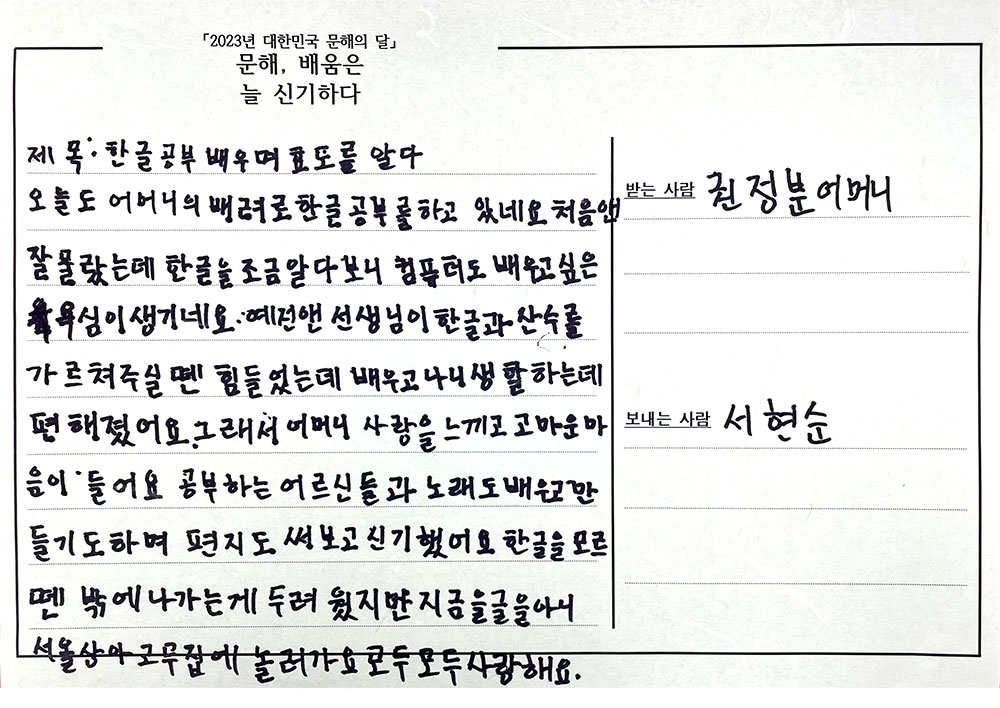 「2023년 대한민국 문해의 달」
문해, 배움은
늘 신기하다
제 목: 한글공부 배우며 효도를 알다
오늘도 어머니의 배려로 한글공부를 하고 있네요 처음앤
잘 몰랐는데 한글을 조금 알다보니 컴퓨터도 배우고 싶은
욕심이 생기네요. 예전앤 선생님이 한글과 산수를
가르쳐주실 땐 힘들었는데 배우고나니 생활하는데
편해졌어요. 그래서 어머니 사랑을 느끼고 고마운마
음이 들어요 공부하는 어르신들과 노래도 배우고 만
들기도하며 편지도 써보고 신기했어요 한글을 모르
땐 밖에 나가는게 두려웠지만 지금을 글을 아니
고무집에 놀러가요 모두모두 사랑해요.
받는 사람 권정분어머니
보내는 사람 서현순